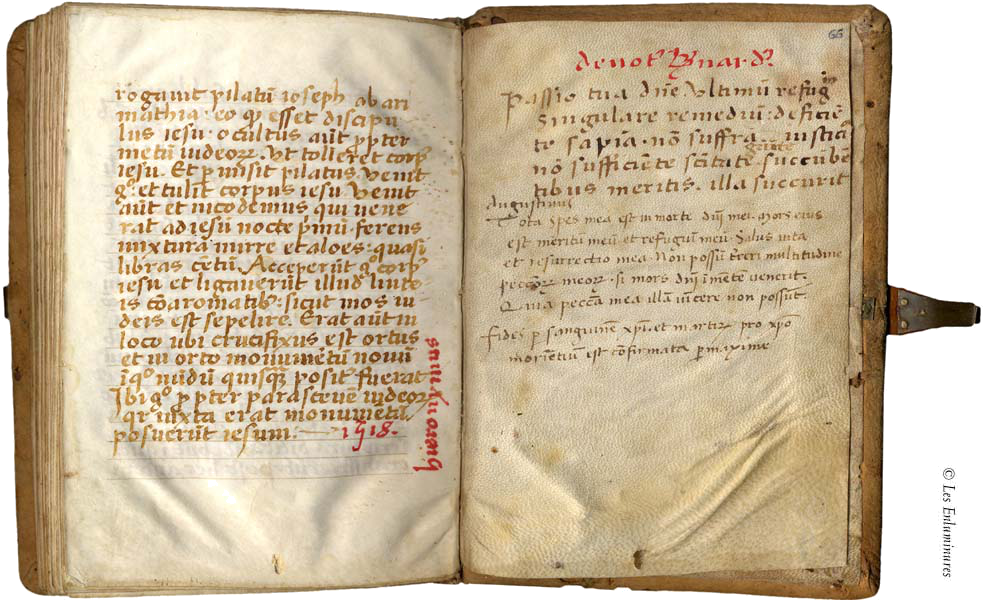 rogauit pilatū ioseph ab ari
mathia· eo qͦ esset discipu
lus iesu· ocultus aūt ꝓpter
metū iudeoꝝ. Vt tolleret corpꝰ
iesu. Et ꝑmisit pilatus. Venit
gͦ. et tulit corpus iesu. Venit
aūt et nicodemus qui uene
rat ad iesū nocte pͥmū· ferens
mixturā mirre et aloes· quasi
libras cētū. Acceperūt gͦ corpꝰ
iesu et ligauerūt illud linte
is cū aromatibꝰ· sicut mos iu
deis est sepelire. Erat aūt in
loco ubi crucifixus est ortus
et in orto monumētū nouū
ī qͦ nūdū quisqᷓꝫ positꝰ fuerat
Ibi gͦ ꝓpter parasceuē iudeoꝝ
qꝛ iuxta erat monumētū,
posuerūt iesum. 1518.
66
deuotꝰ Bernardꝰ
Passio tua dn̄e Vltimū refugiū
Singulare remediū: deficiē
te sapīa· nō suffra
iusticia
nō sufficiēte sc̄titate· succūbē
tibus meritis· illa succurit
Augustinus
Tota spes mea est in morte dn̄i mei. Mors eius
est meritū meū et refugiū meū. Salus uita
et resurrectio mea. Non possū t̄reri multitudine
pecc̄oꝝ meoꝝ· si mors dn̄i ī mētē uenerit.
Quia pecc̄a mea illā uīcere non possūt.
Fides ꝑ sanguinem xp̄i. et martirū pro xp̄o
morientiū est cōfirmata ꝑmaxime
© Les Enluminures